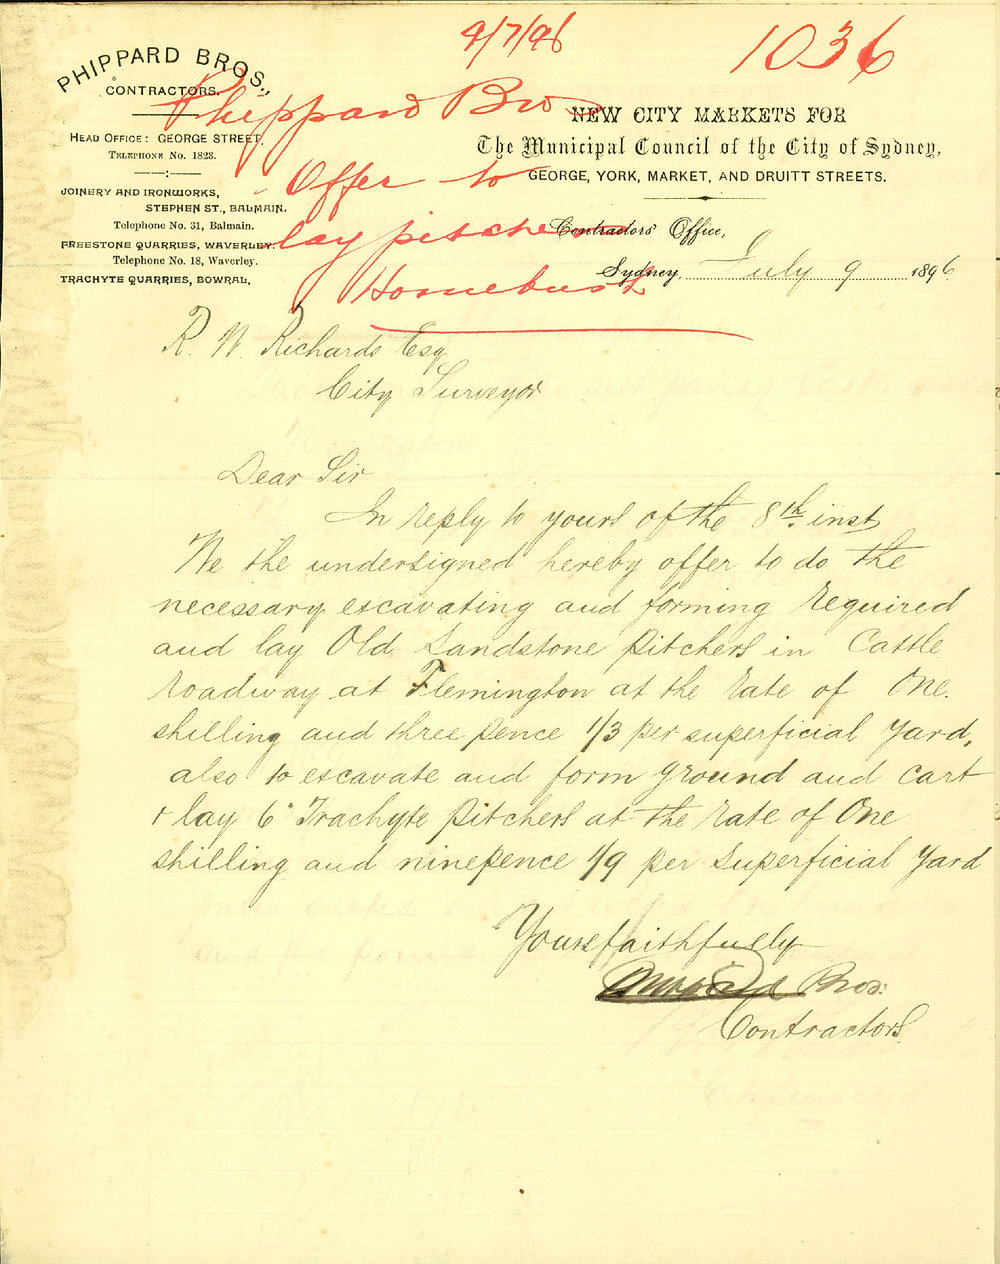 9/7/96
1036
PHIPPARD BROS.,
CONTRACTORS.
HEAD OFFICE: GEORGE STREET.
TELEPHONE No. 1823.
JOINERY AND IRONWORKS,
STEPHEN ST., BALMAIN.
Telephone No. 31, Balmain.
FREESTONE QUARRIES, WAVERLEY.
Telephone No. 18, Waverley.
TRACHYTE QUARRIES, BOWRAL.
Phippard Bro
Offer to
lay pitchers
Homebush
NEW CITY MARKETS FOR
The Municipal Council of the City of Sydney,
GEORGE, YORK, MARKET, AND DRUITT STREETS.
Contractors' Office,
Sydney, July 9 1896
R. W. Richards Esq
City Surveyor
Dear Sir
In reply to yours of the 8th inst
We the undersigned hereby offer to do the
necessary excavating and forming required
and lay Old Sandstone pitchers in Cattle
roadway at Flemington at the rate of One
shilling and three pence 1/3 per superficial yard,
also to excavate and form ground and cart
+ lay 6" Trachyte pitchers at the rate of One
shilling and ninepence 1/9 per superficial yard
Yours faithfully
Phippard Bros:
Contractors